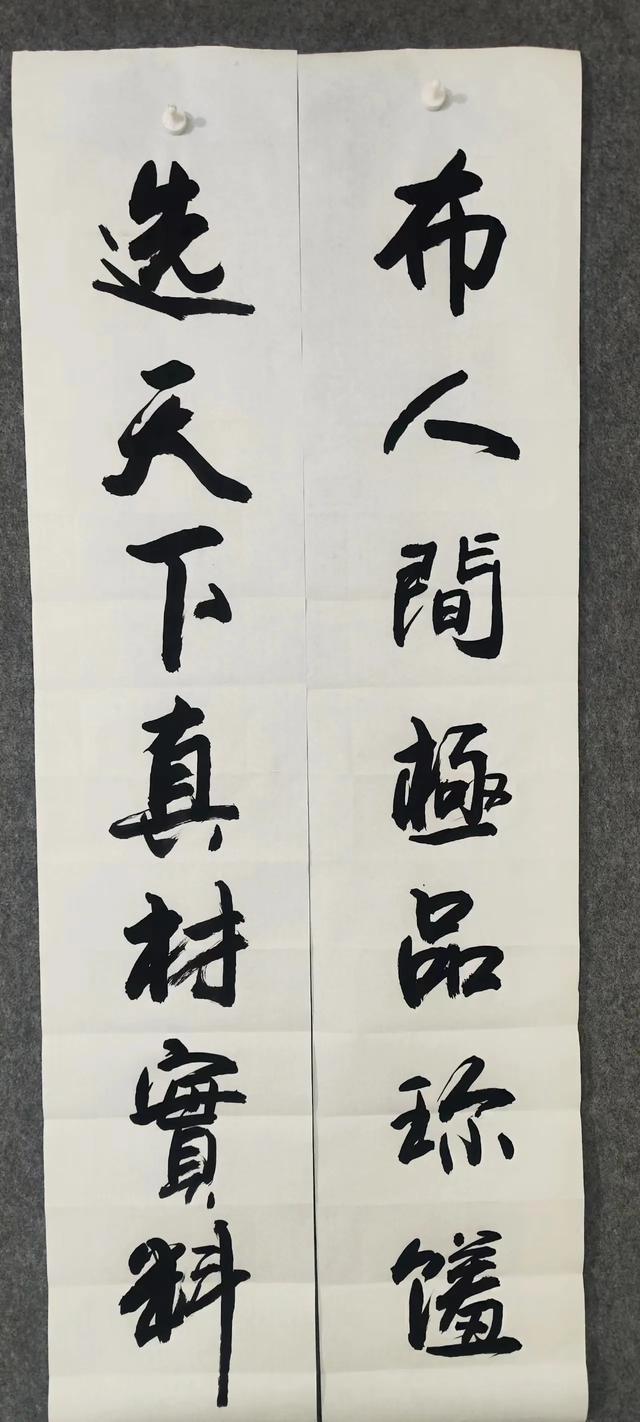 布人間極品珎饈
选天下真材實料